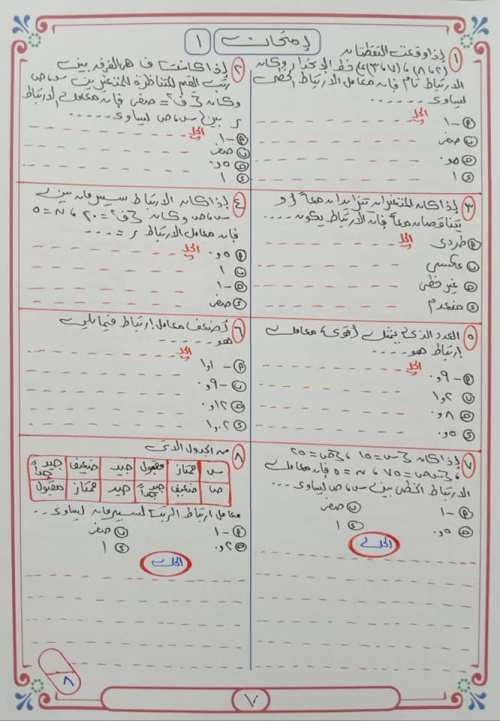 إمتحان ١
١) إذا وقعت النقطتان
(٨،٢)، (٣،٧) على خط الإنحدار وكان
الارتباط تام فإن معامل الارتباط الخطى
يساوى ....
الحل
أ) -١
ب) صفر
د) ١
٢) إذا كانت ف هى الفرق بين
رتب القيم المتناظرة للمتغيرين س، ص
وكان مجـ ف٢ = صفر فإن معامل الارتباط
ر بين س، ص يساوى ....
الحل
أ) -١
ب) صفر
ج) ٠,٥
د) ١
٣) إذا كان المتغيران يتزايدان معاً أو
يتناقصان معاً فإن الارتباط يكون ....
الحل
أ) طردى
ب) عكسى
ج) غير خطى
د) منعدم
٤) إذا كان الارتباط سبيرمان بين
س، ص وكان مجـ ف٢ = ٢٠، ن = ٥
فإن معامل الارتباط ر = ....
الحل
أ) ٠,٥
ب) ١
ج) -١
د) صفر
٥) العدد الذى يمثل أقوى معامل
إرتباط هو ....
الحل
أ) -٠,٩
ب) ١,٢
ج) ٠,٨
د) ٠,٥
٦) أضعف معامل إرتباط فيما يلى
هو ....
الحل
أ) -٠,١
ب) -٠,٩
ج) ٠,١٢
٧) إذا كان مجـ س = ١٥، مجـ ص = ٢٥
، مجـ س ص = ٧٥، ن = ٥ فإن معامل
الارتباط الخطى بين س، ص يساوى ...
أ) -١ ب) صفر
ج) ٠,٥ د) ١
الحل
٨) من الجدول الآتى
س ممتاز مقبول جيد ضعيف جيد جداً
ص ضعيف جيد جداً جيد ممتاز مقبول
معامل ارتباط الرتب لسبيرمان يساوى ...
أ) -١ ب) صفر
ج) ٠,٢ د) ١
الحل
٨
٧